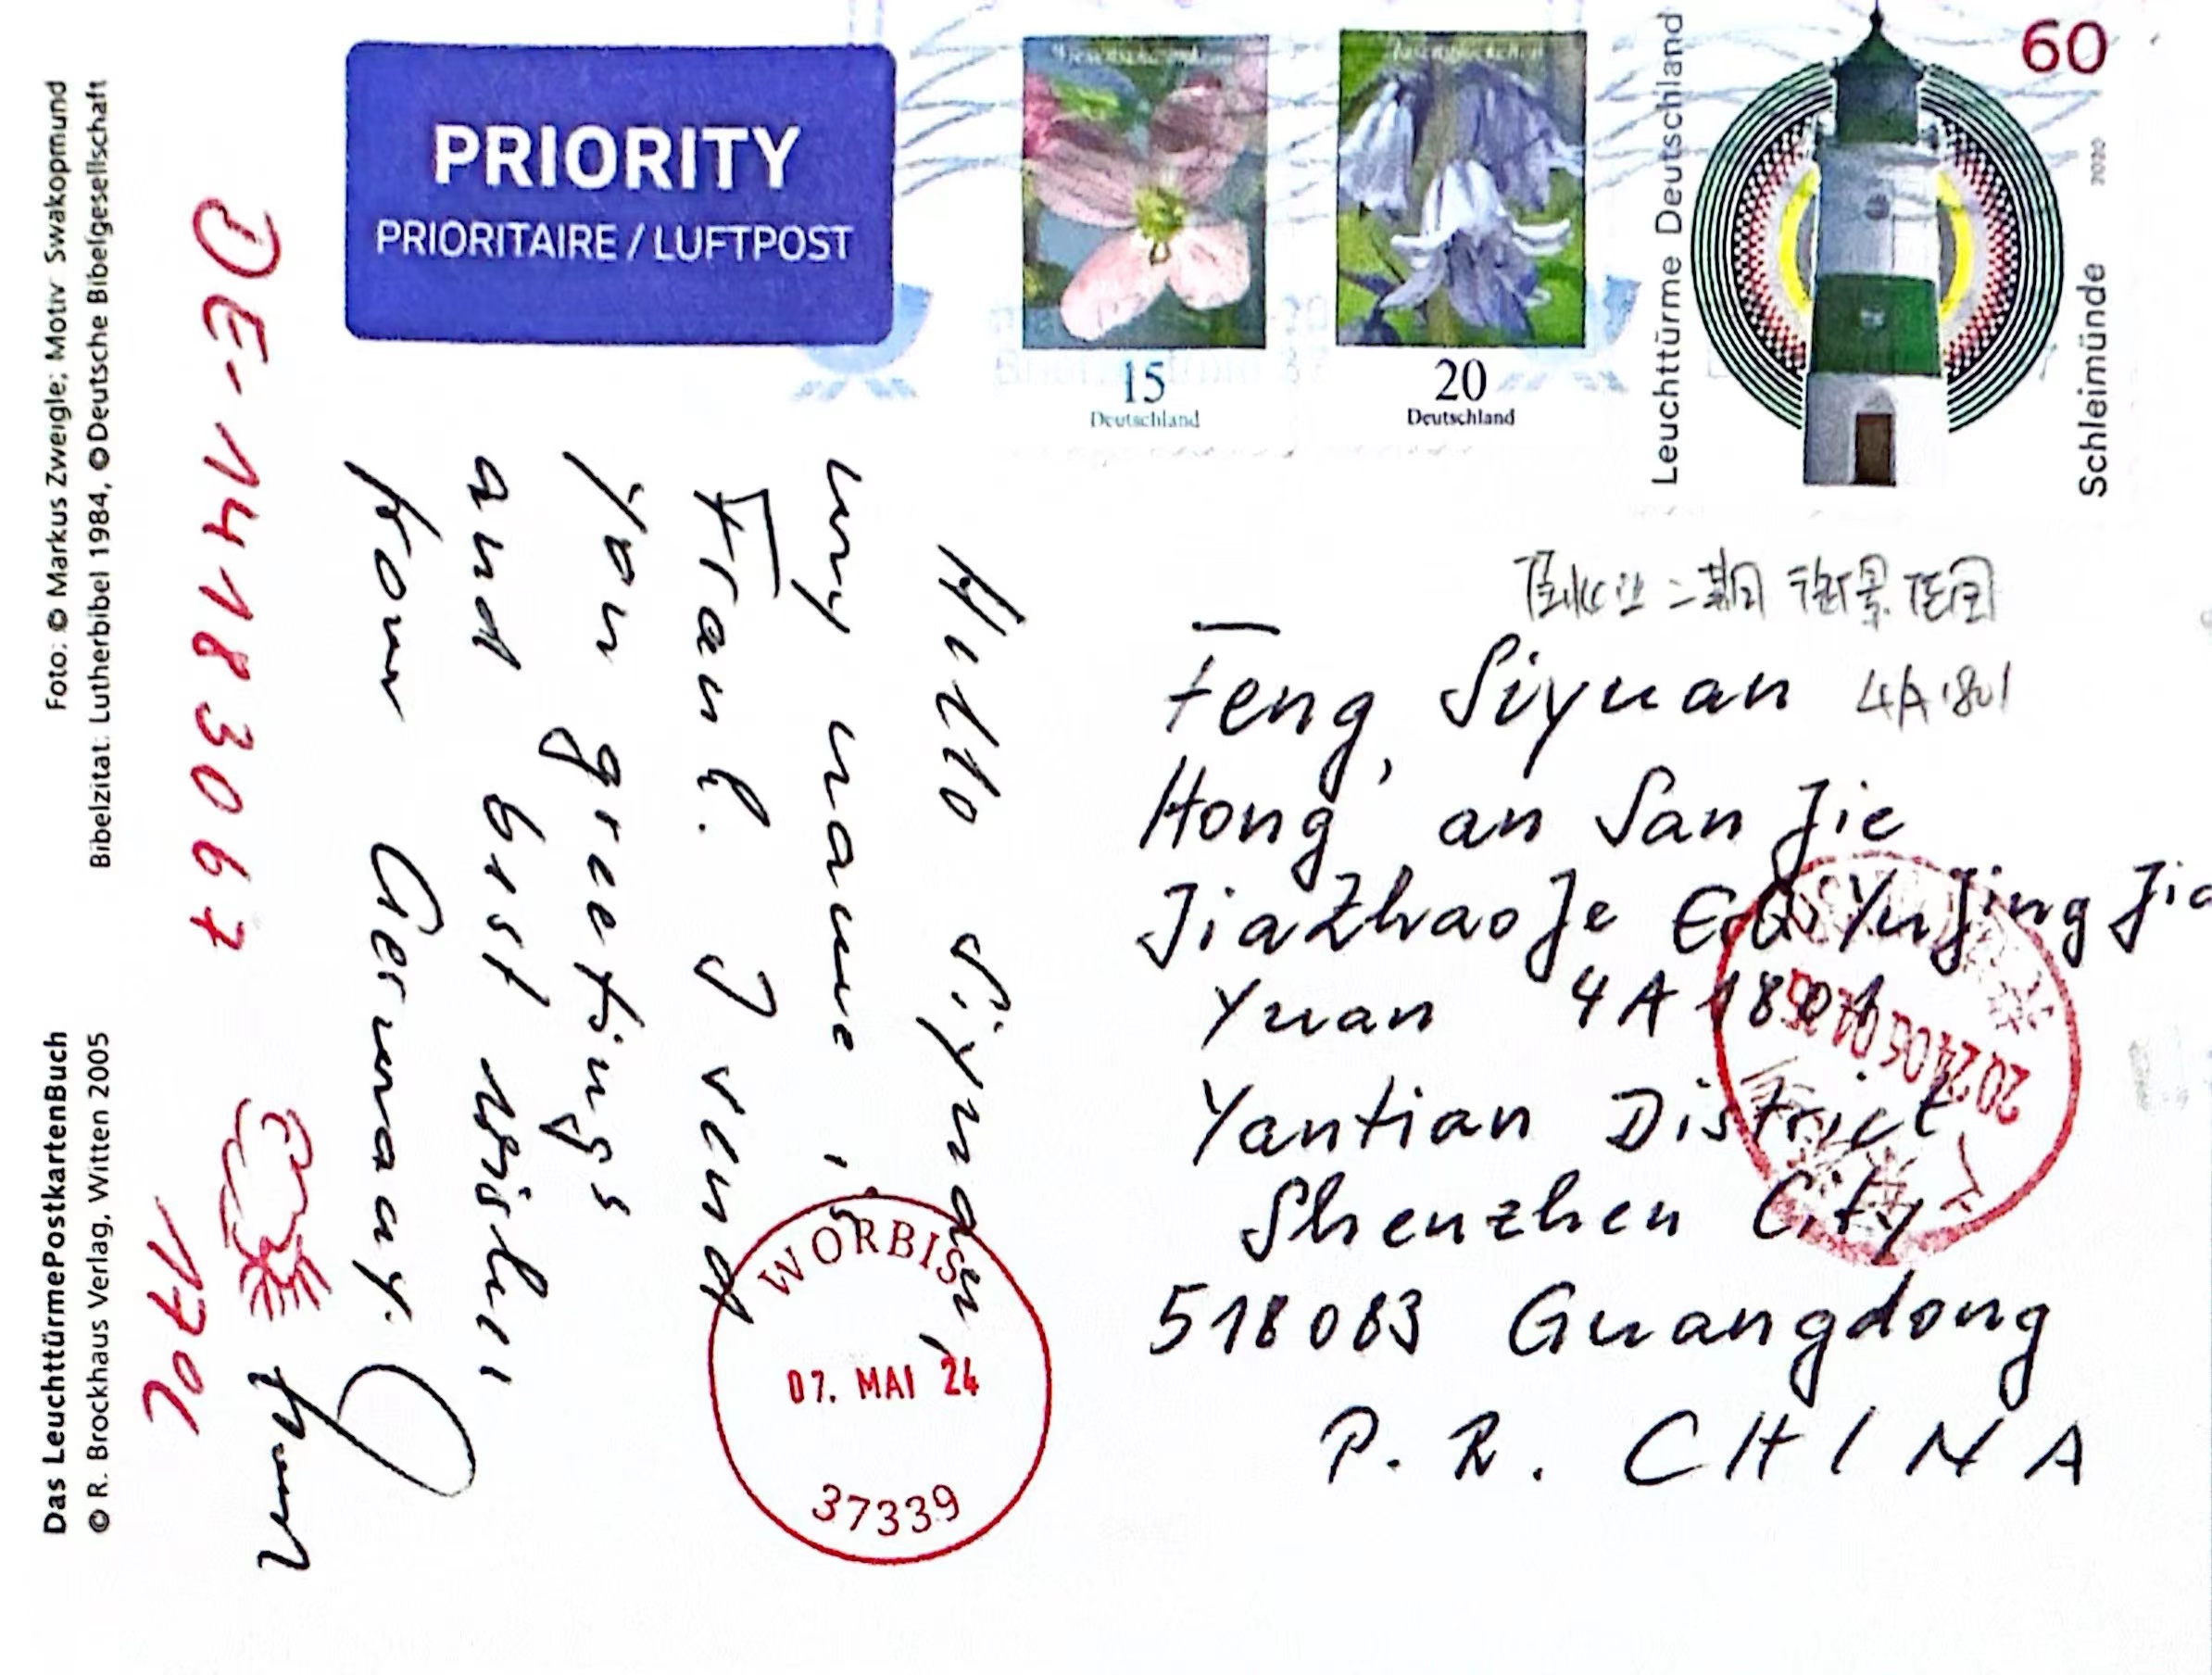 Foto: © Markus Zweigle; Motiv: Swakopmund
Bibelzitat: Lutherbibel 1984, © Deutsche Bibelgesellschaft
Das LeuchttürmePostkartenBuch
© R. Brockhaus Verlag, Witten 2005
PRIORITY
PRIORITAIRE / LUFTPOST
Wiesenschaumkraut
15
Deutschland
Hasenglöckchen
20
Deutschland
Leuchttürme Deutschland
60
2020
Schleimünde
DE-14183067
17°C
Hello Siyuan,
my name is
Frank. I send
you greetings
and best wishes
from Germany.
Frank
WORBIS
07. MAI 24
37339
二期 御景佳园
4A 1801
Feng, Siyuan
Hong an San Jie
JiaZhaoJe EQi YuJing Jia
Yuan 4A 1801
Yantian District
Shenzhen City
518083 Guangdong
P. R. CHINA